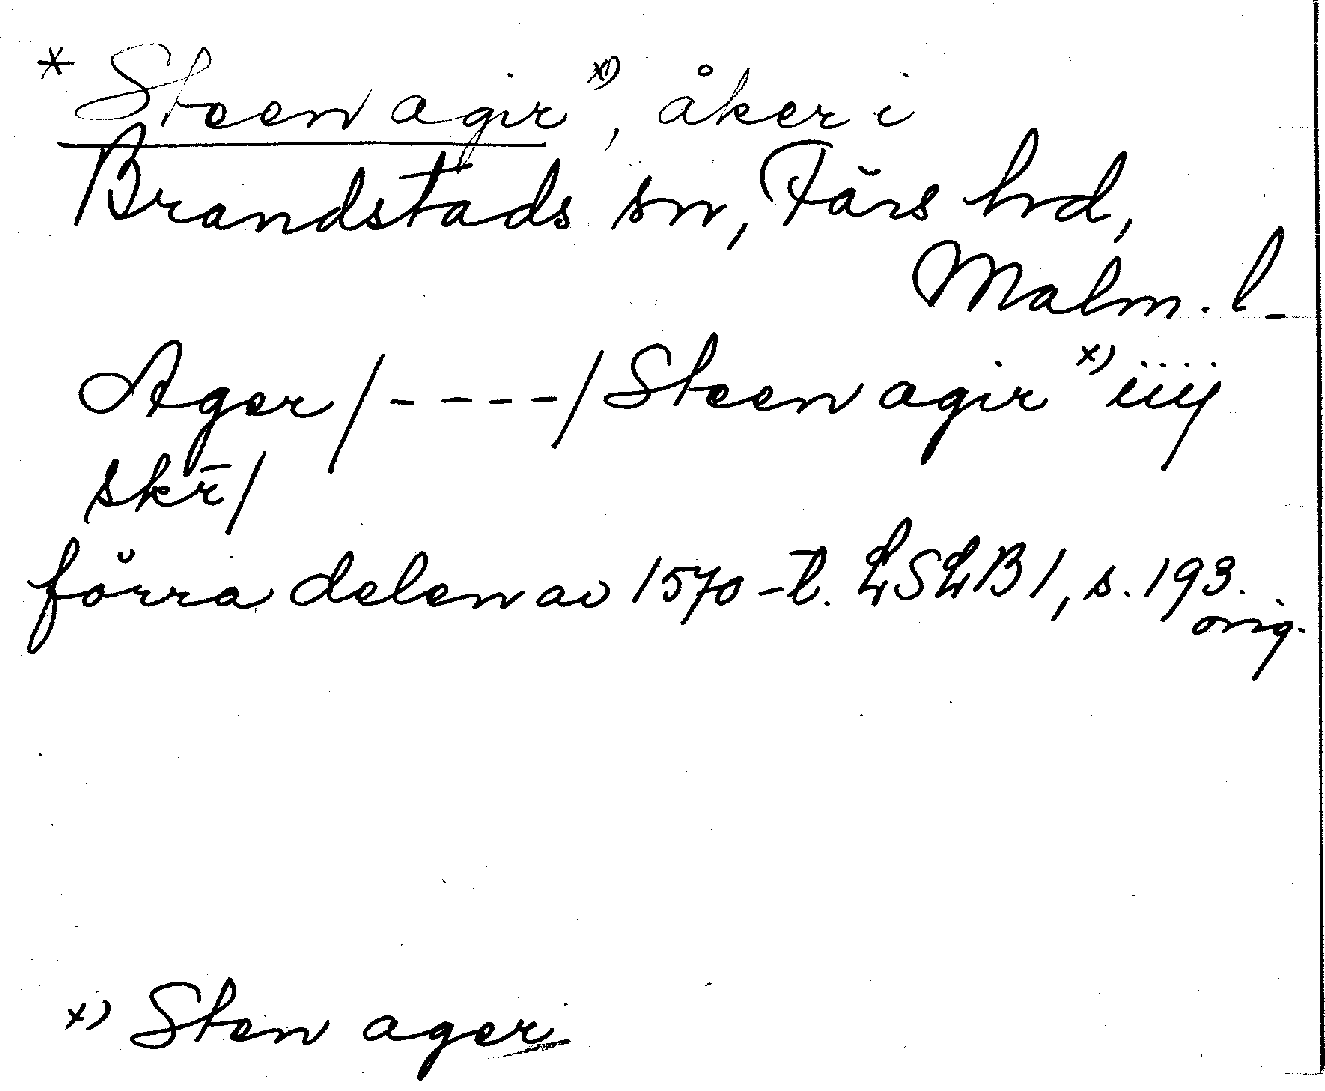 * Steen agir x), åker i
Brandstads sn, Färs hd,
Malm. l.
Ager/----/Steen agir x) iiij
skr̄/
förra delen av 1570-t. LSLB 1, s. 193.
orig.
x) Sten ager